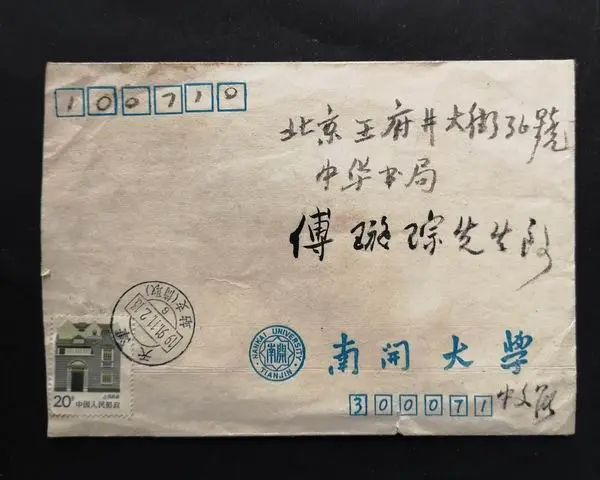 100710
北京王府井大街36號
中华书局
傅璇琮先生
NANKAI UNIVERSITY
TIANJIN
南開
南開大學
300071
中文
20分
中国人民邮政
上海民居
天津